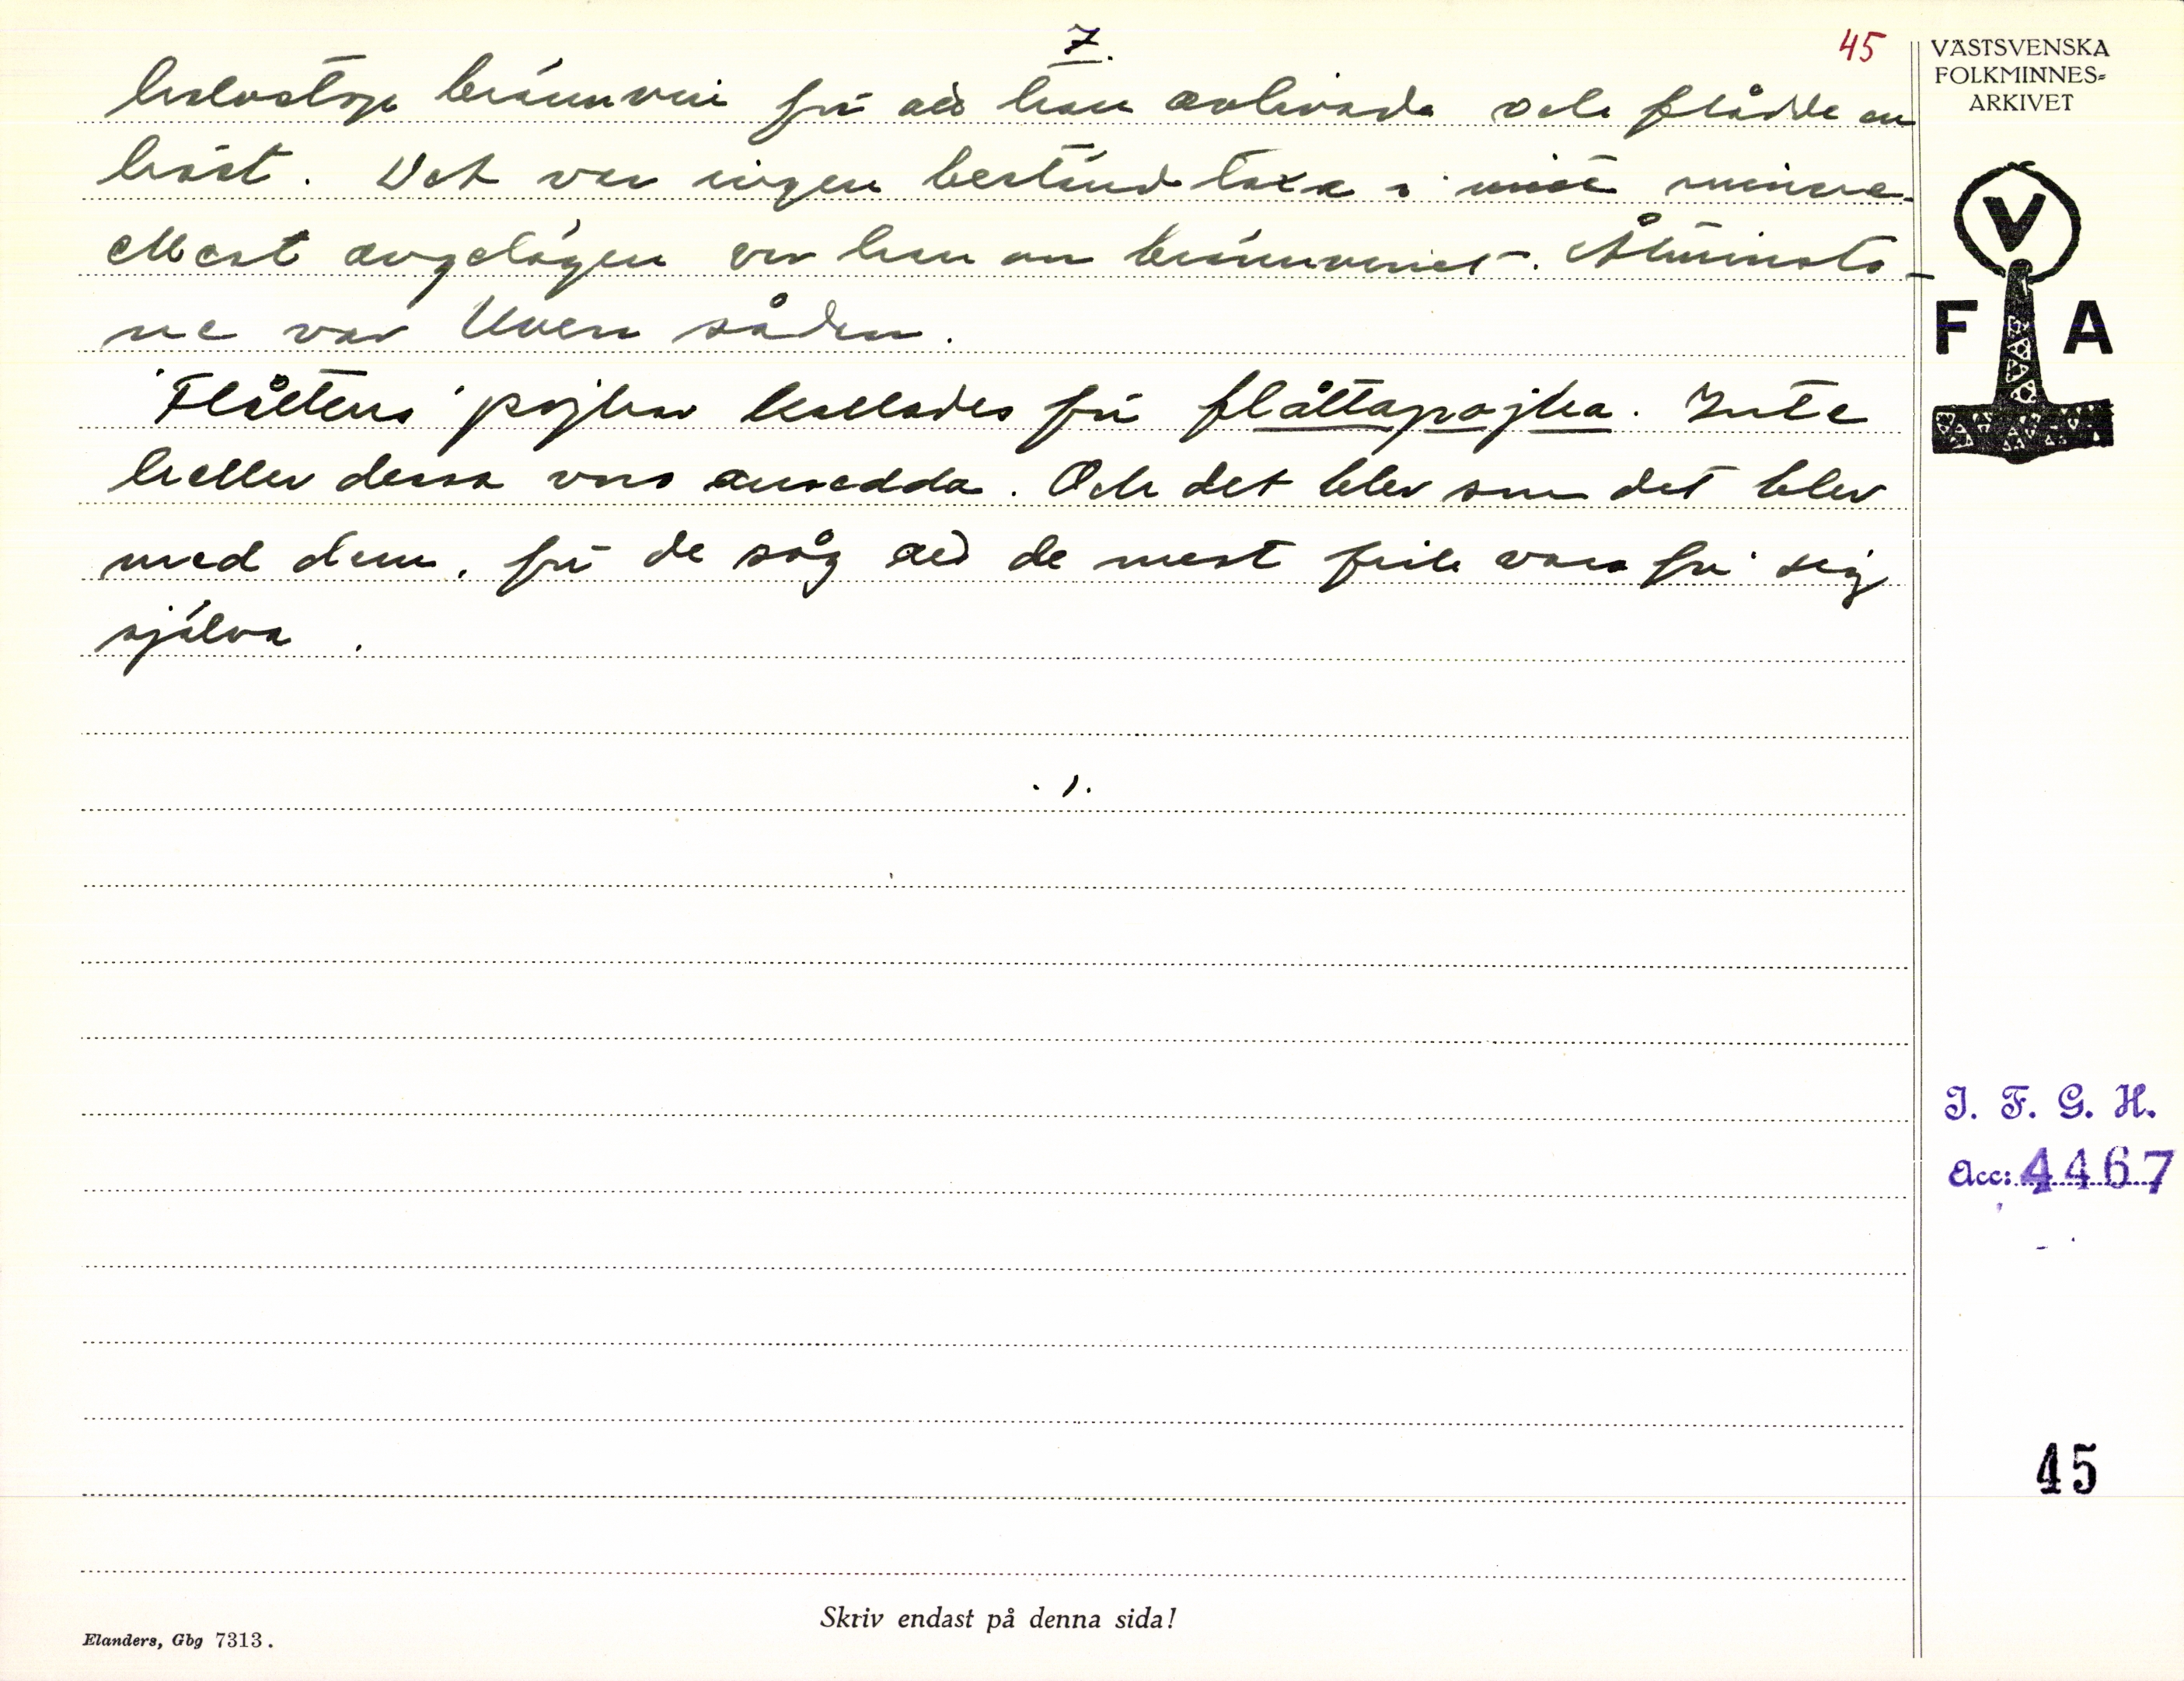 7.
45
halvstop brännvin för att han avlivade och flådde en
häst. Det var ingen bestämd taxa i mitt minne.
Mest angelägen var han om brännvinet. Åtminsto-
ne var Uven sådan.
"Flåttens" pojkar kallades för flåttapojka. Inte
heller dessa voro ansedda. Och det blev som det blev
med dem, för de såg att de mest fick vara för sig
själva.
VÄSTSVENSKA
FOLKMINNES=
ARKIVET
V
F A
I. F. G. H.
Acc: 4467
45
Skriv endast på denna sida!
Elanders, Gbg 7313.